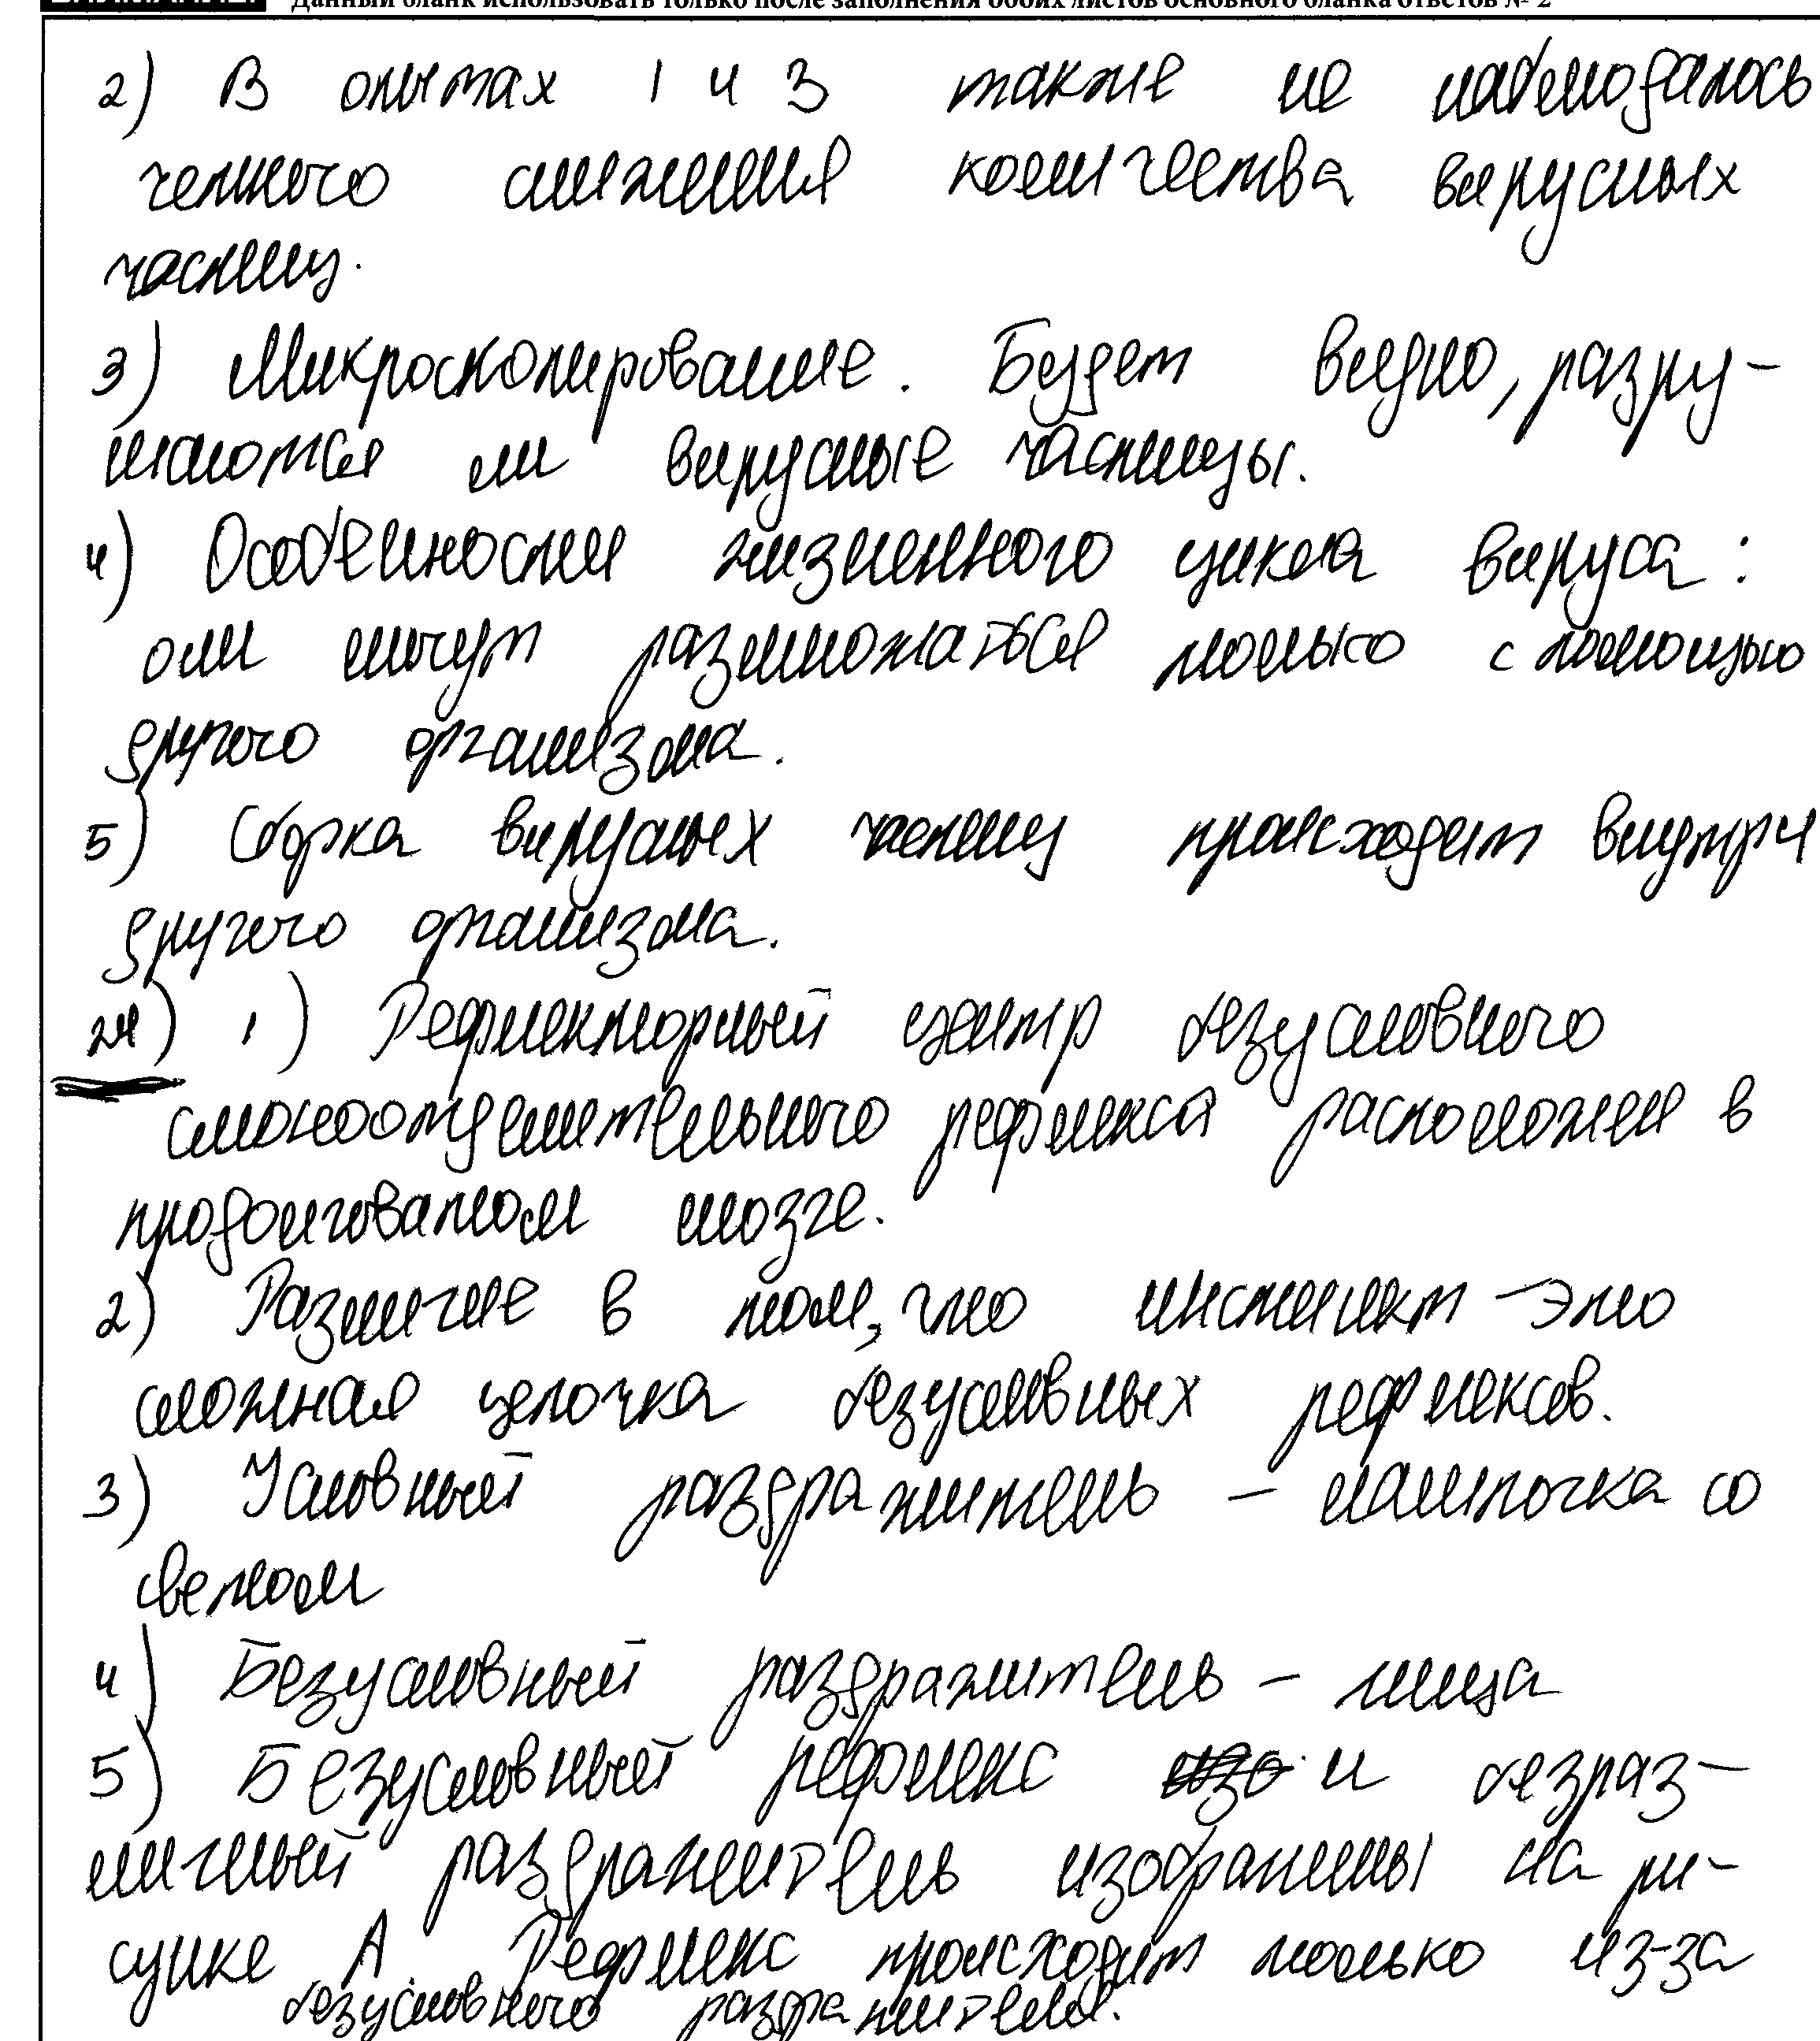 Данный бланк использовать только после заполнения обоих листов основного бланка ответов № 2
2) В опытах 1 и 3 также не наблюдалось
четкого снижения количества вирусных
частиц.
3) Микроскопирование. Будет видно, разру-
шаются ли вирусные частицы.
4) Особенности жизненного цикла вируса:
они могут размножаться только с помощью
другого организма.
5) Сборка вирусных частиц происходит внутри
другого организма.
24) 1) Рефлекторный центр безусловного
слюноотделительного рефлекса расположен в
продолговатом мозге.
2) Различие в том, что инстинкт - это
сложная цепочка безусловных рефлексов.
3) Условный раздражитель - лампочка со
светом
4) Безусловный раздражитель - пища
5) Безусловный рефлекс и безраз-
личный раздражитель изображены на ри-
сунке А. Рефлекс происходит только из-за
безусловного раздражителя.